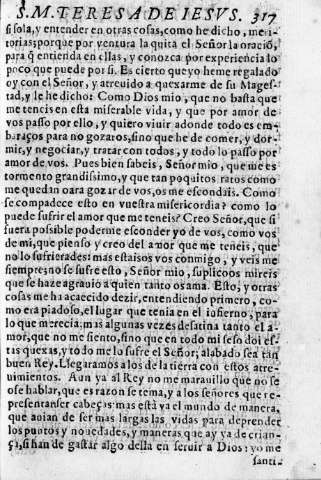 S. M. TERESA DE IESVS. 317
si sola, y entender en otras cosas, como he dicho, me ri-
torias: porque por ventura la quita el Señor la oraciō,
para q̄ entienda en ellas, y conozca por experiencia lo
poco que puede por si. Es cierto que yo me he regalado
oy con el Señor, y atreuido a quexarme de su Mages-
tad, y le he dicho: Como Dios mio, que no basta que
me teneis en esta miserable vida, y que por amor de
vos passo por ello, y quiero viuir adonde todo es em-
baraços para no gozaros, sino que he de comer, y dor-
mir, y negociar, y tratar con todos, y todo lo passo por
amor de vos. Pues bien sabeis, Señor mio, que me es
tormento grandissimo, y que tan poquitos ratos como
me quedan oara gozar de vos, os me escondais. Como
se compadece esto en vuestra misericordia? como lo
puede sufrir el amor que me teneis? Creo Señor, que si
fuera possible poderme esconder yo de vos, como vos
de mi, que pienso y creo del amor que me teneis, que
no lo sufrierades: mas estaisos vos conmigo, y veis me
siempre; no se sufre esto, Señor mio, suplicoos mireis
que se haze agrauio a quien tanto os ama. Esto, y otras
cosas me ha acaecido dezir, entendiendo primero, co-
mo era piadoso, el lugar que tenia en el infierno, para
lo que merecia: mas algunas vezes desatina tanto el a-
mor, que no me siento, sino que en todo mi seso doi es-
tas quexas, y todo me lo sufre el Señor; alabado sea tan
buen Rey. Llegaramos a los de la tierra con estos atre-
uimientos. Aun ya al Rey no me marauillo que no se
ose hablar, que es razon se tema, y a los señores que re-
presentan ser cabeças: mas està ya el mundo de manera,
que auian de ser mas largas las vidas para deprender
los puntos y nouedades, y maneras que ay ya de crian-
ça, si han de gastar algo della en seruir a Dios: yo me
santi-